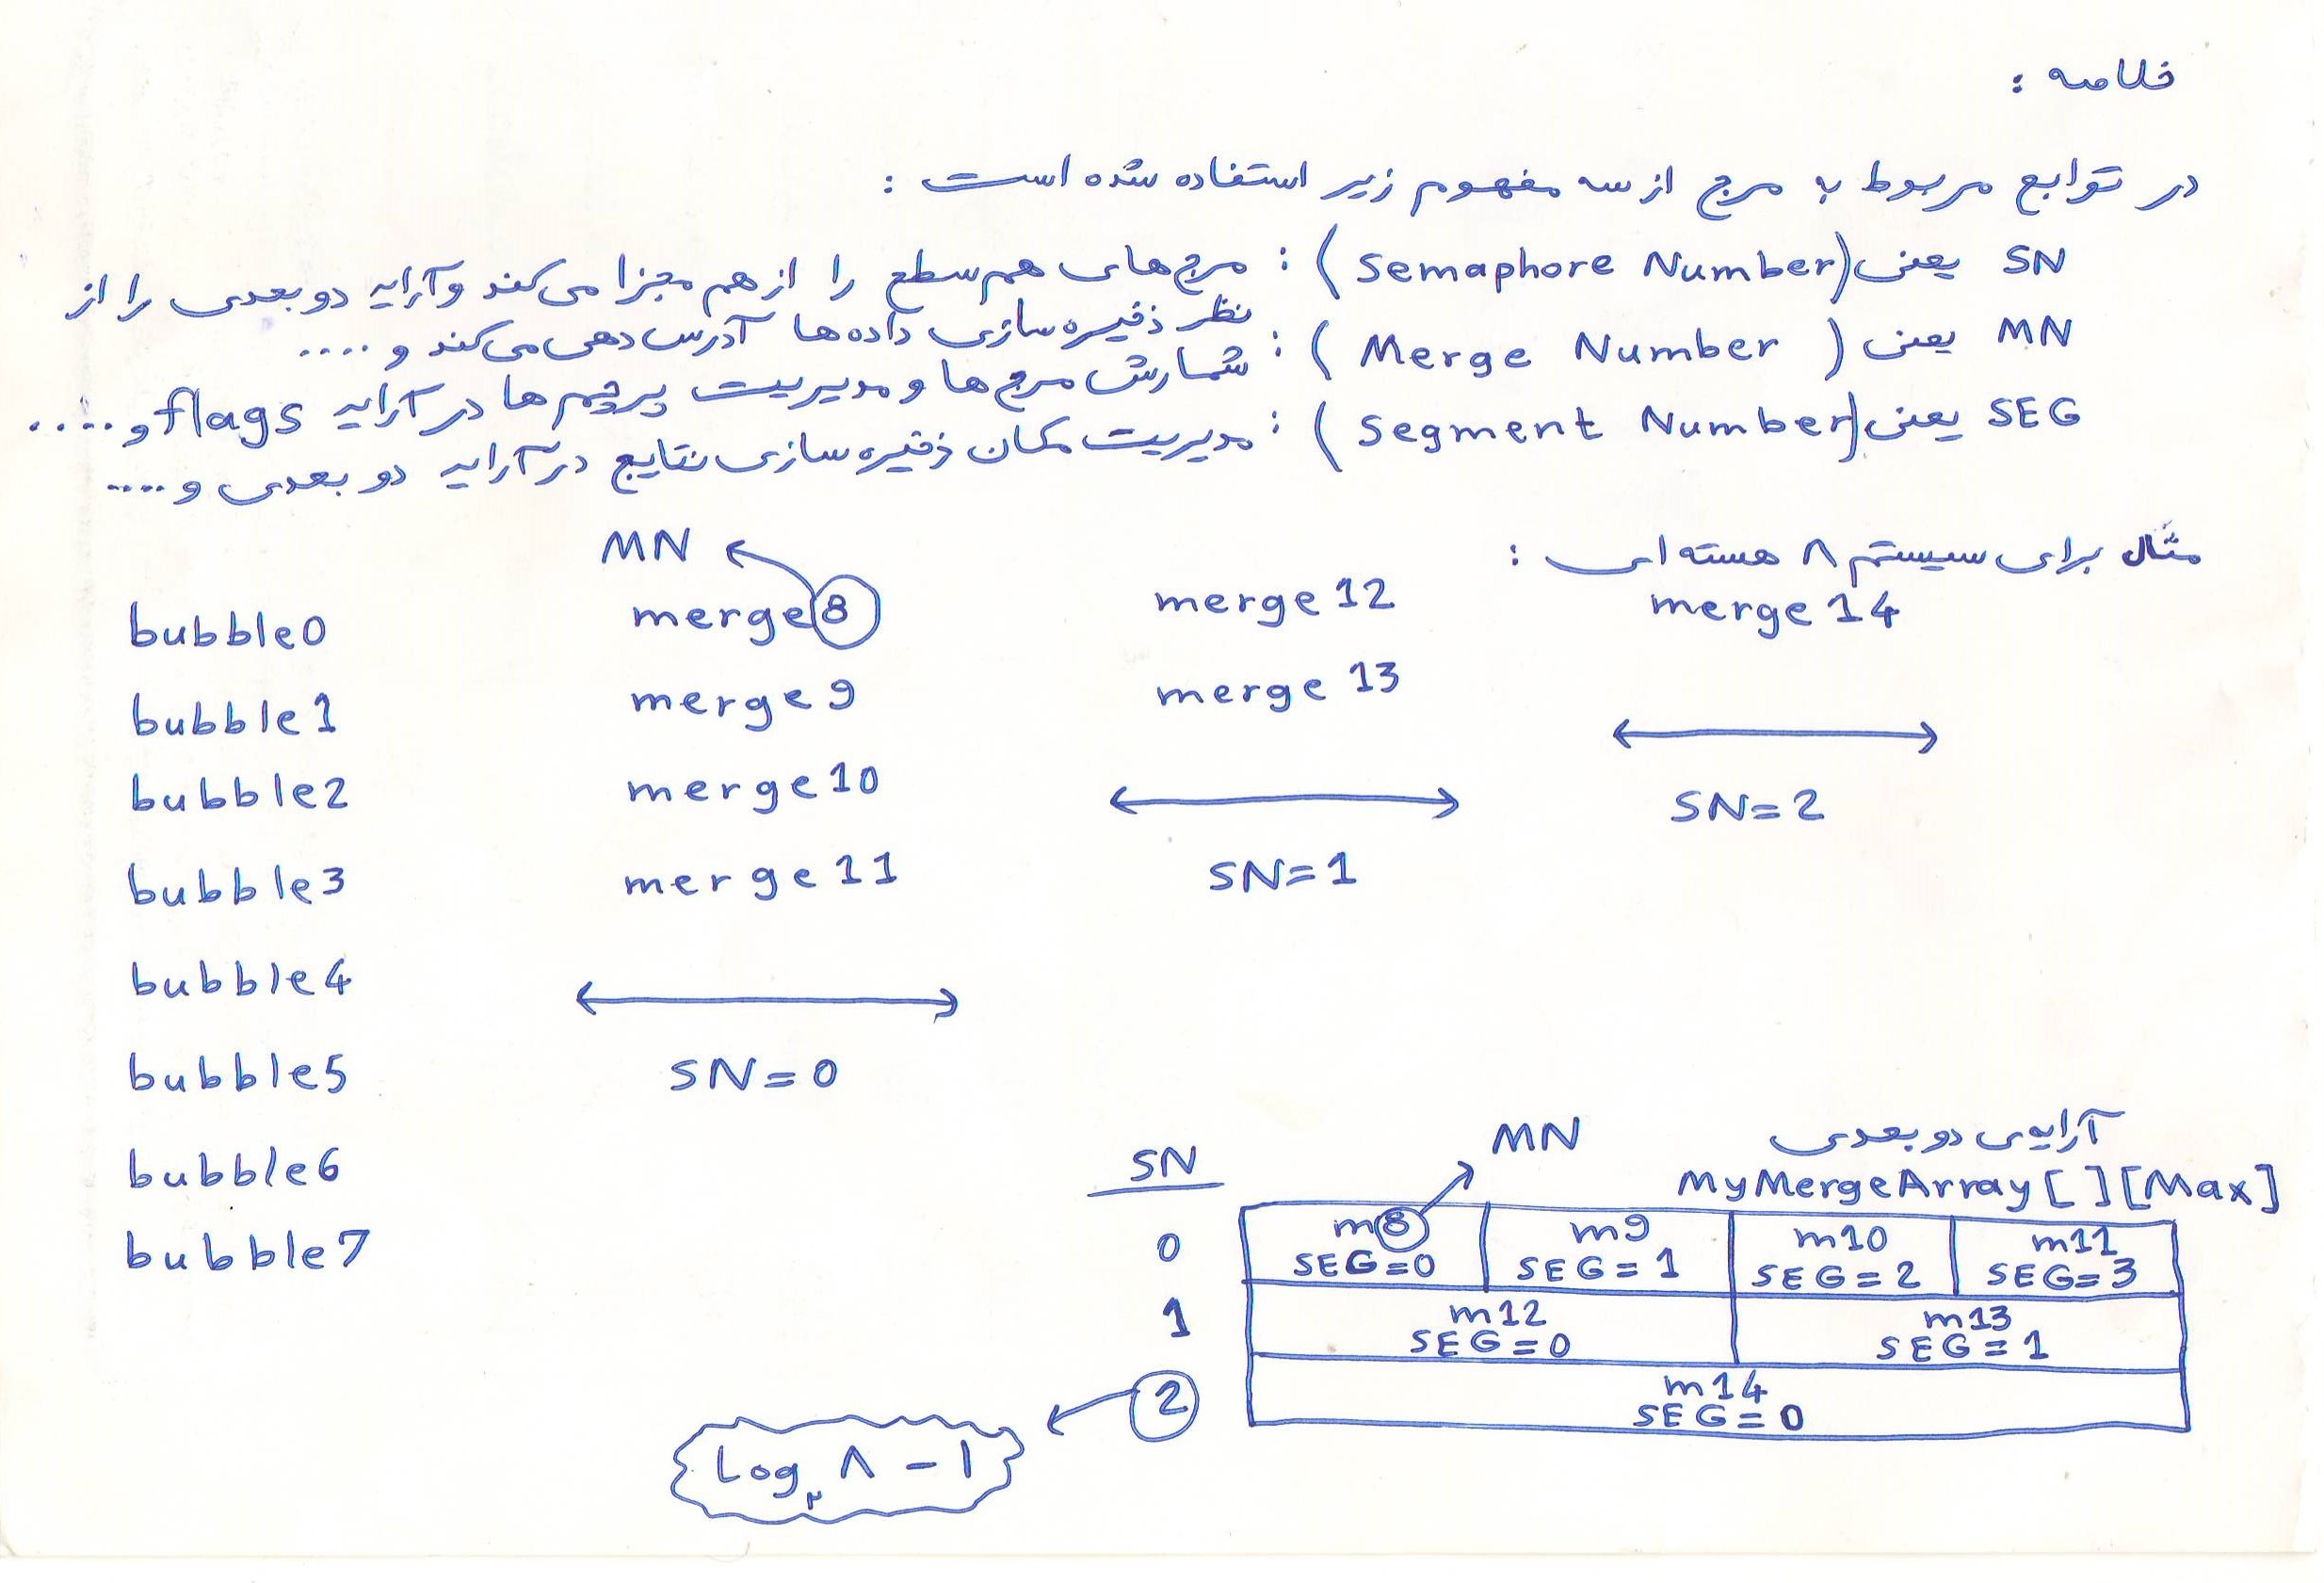 خلاصه :
در توابع مربوط به مرج از سه مفهوم زیر استفاده شده است :
SN یعنی (Semaphore Number) : مرج های هم سطح را از هم مجزا می کند و آرایه دو بعدی را از
نظر ذخیره سازی داده ها آدرس دهی می کند و ....
MN یعنی (Merge Number) : شمارش مرج ها و مدیریت پرچم ها در آرایه flags و ....
SEG یعنی (Segment Number) : مدیریت مکان ذخیره سازی نتایج در آرایه دو بعدی و ....
مثال برای سیستم ۸ هسته ای :
MN
bubble0 merge8 merge12 merge14
bubble1 merge9 merge13
bubble2 merge10
bubble3 merge11
bubble4
bubble5
bubble6
bubble7
SN=0
SN=1
SN=2
آرایه‌ی دو بعدی
MyMergeArray[ ][Max]
MN
SN
0 m8 m9 m10 m11
SEG=0 SEG=1 SEG=2 SEG=3
1 m12 m13
SEG=0 SEG=1
2 m14
SEG=0
Log₂ ۸ - ۱